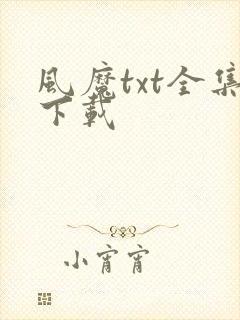 風魔txt全集
下载
小宵宵